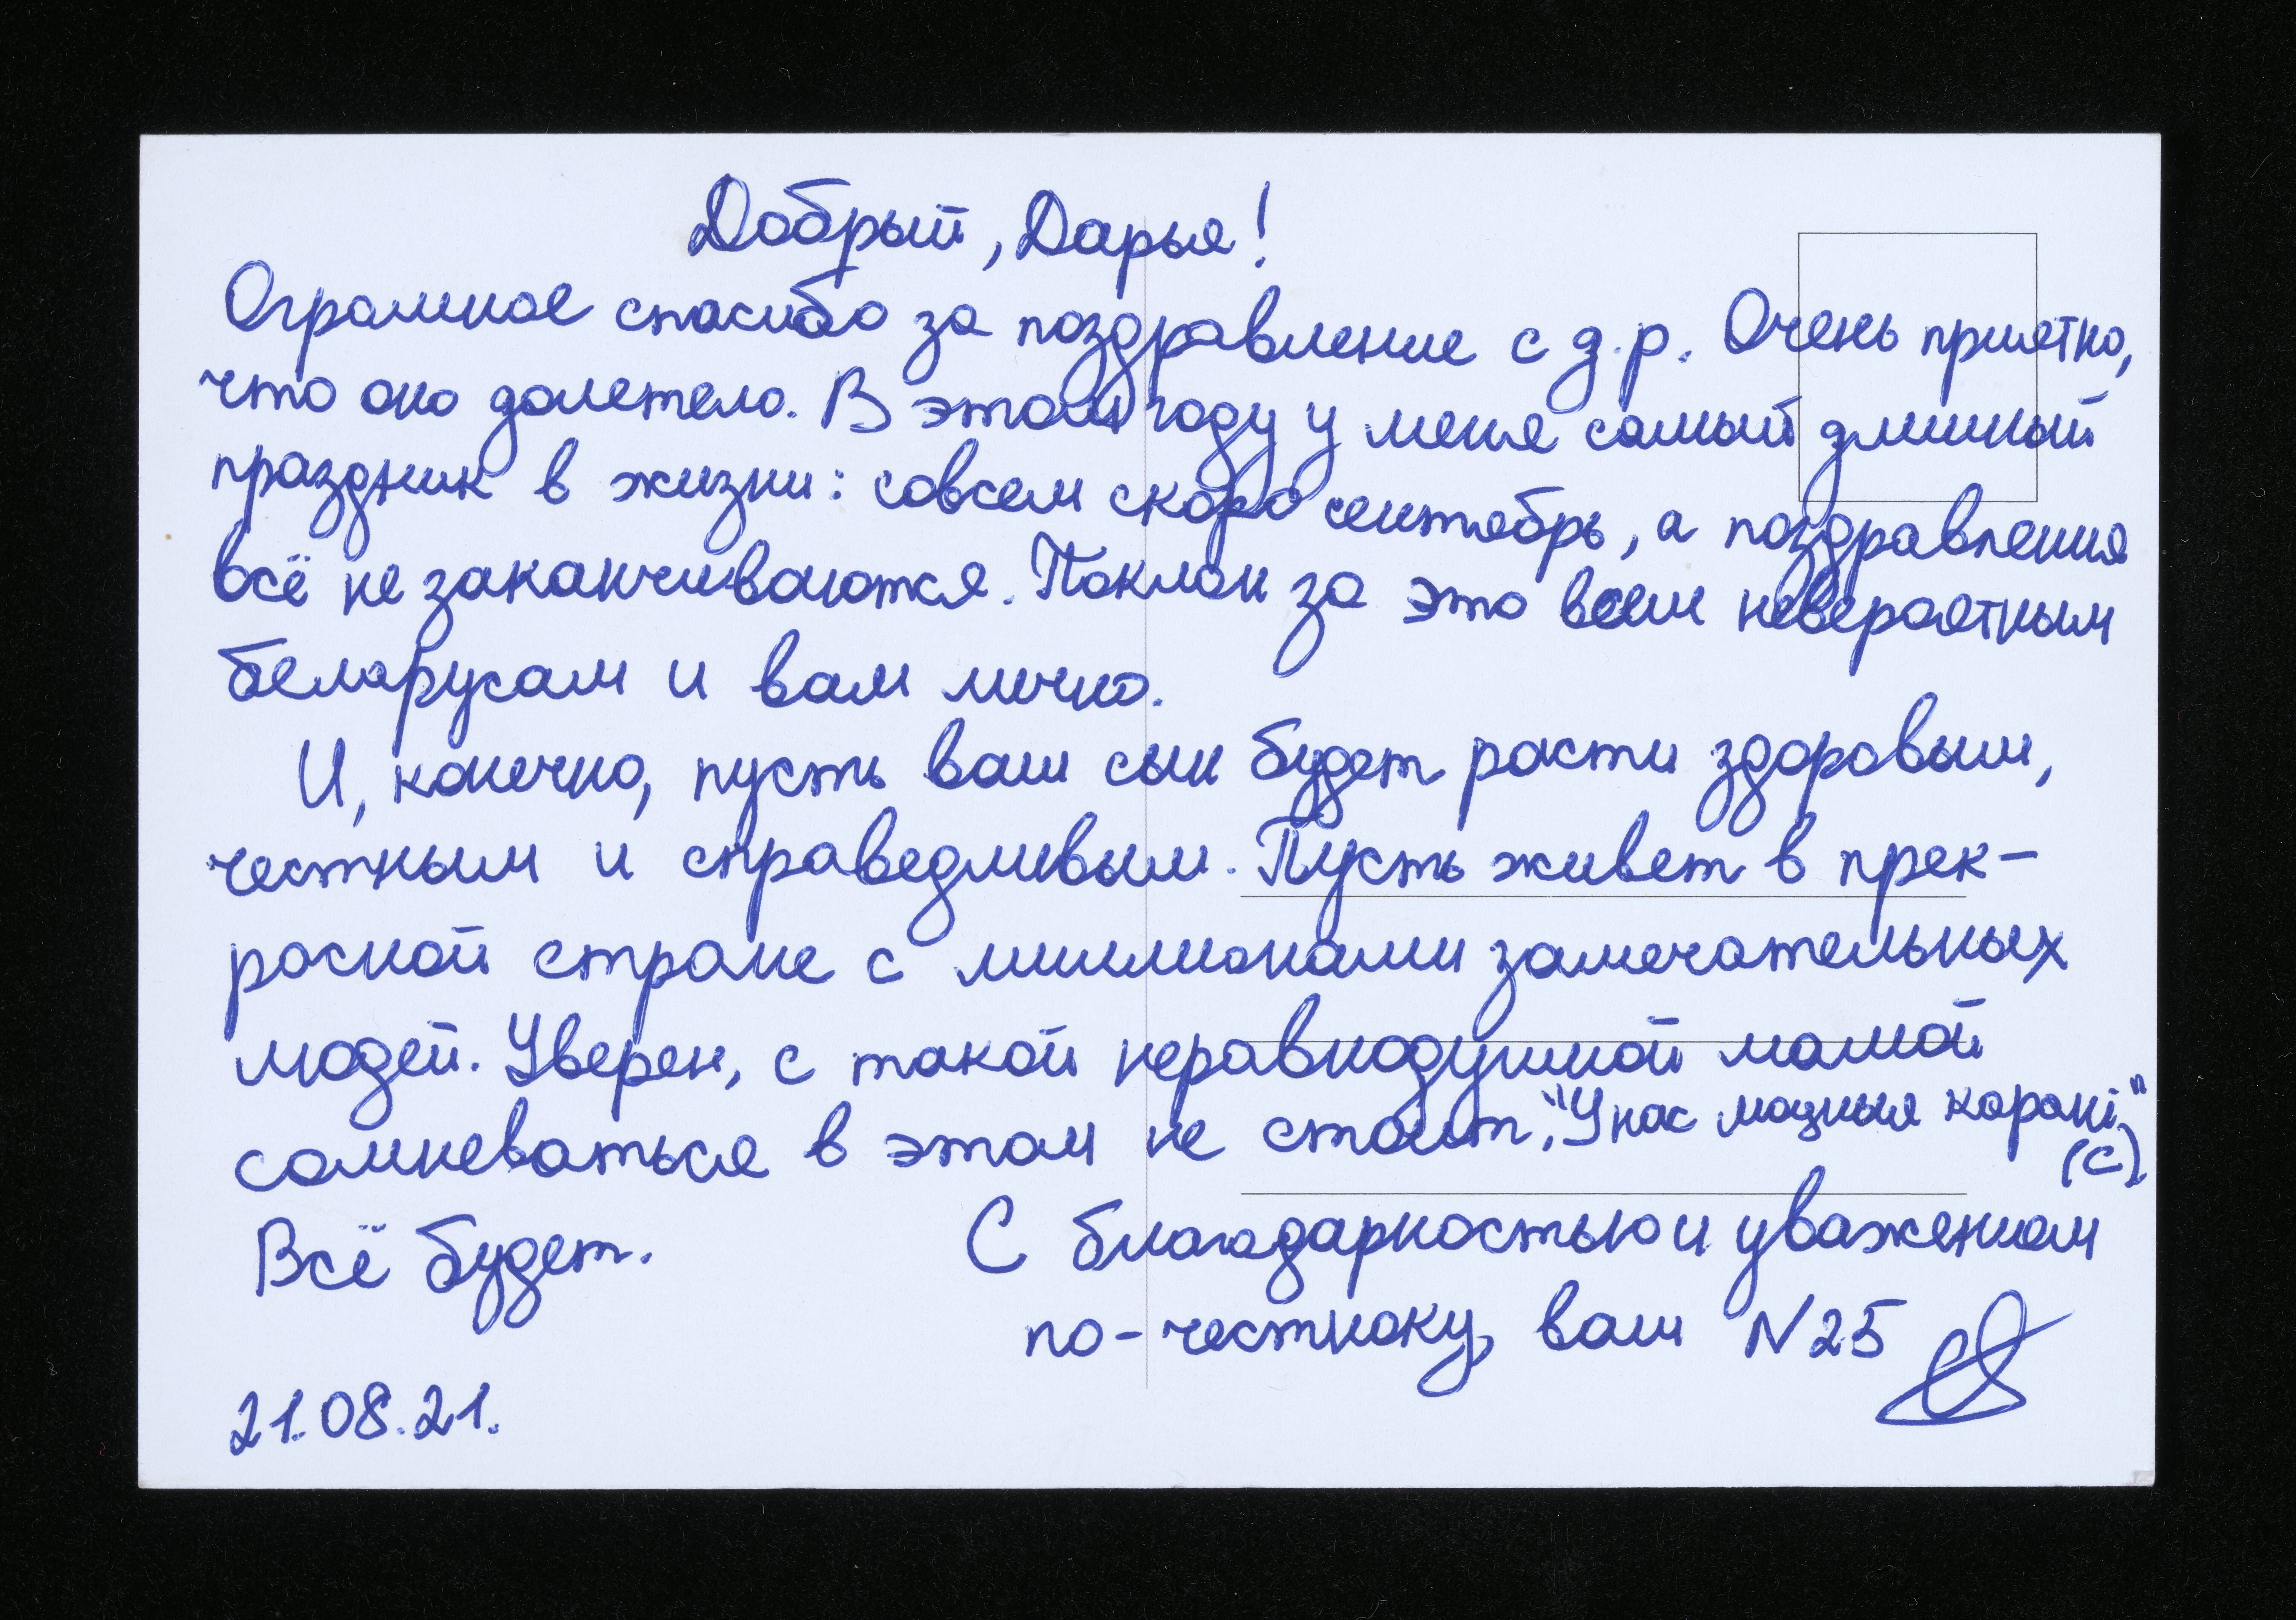 Добрый, Дарья!
Огромное спасибо за поздравление с д.р. Очень приятно,
что оно долетело. В этом году у меня самый длинный
праздник в жизни: совсем скоро сентябрь, а поздравления
всё не заканчиваются. Поклон за это всем невероятным
беларусам и вам лично.
И, конечно, пусть ваш сын будет расти здоровым,
честным и справедливым. Пусть живет в прек-
расной стране с миллионами замечательных
людей. Уверен, с такой неравнодушной мамой
сомневаться в этом не стоит. "У нас моцныя карані"
(с)
Всё будет. С благодарностью и уважением
по-честноку, ваш N25
21.08.21.